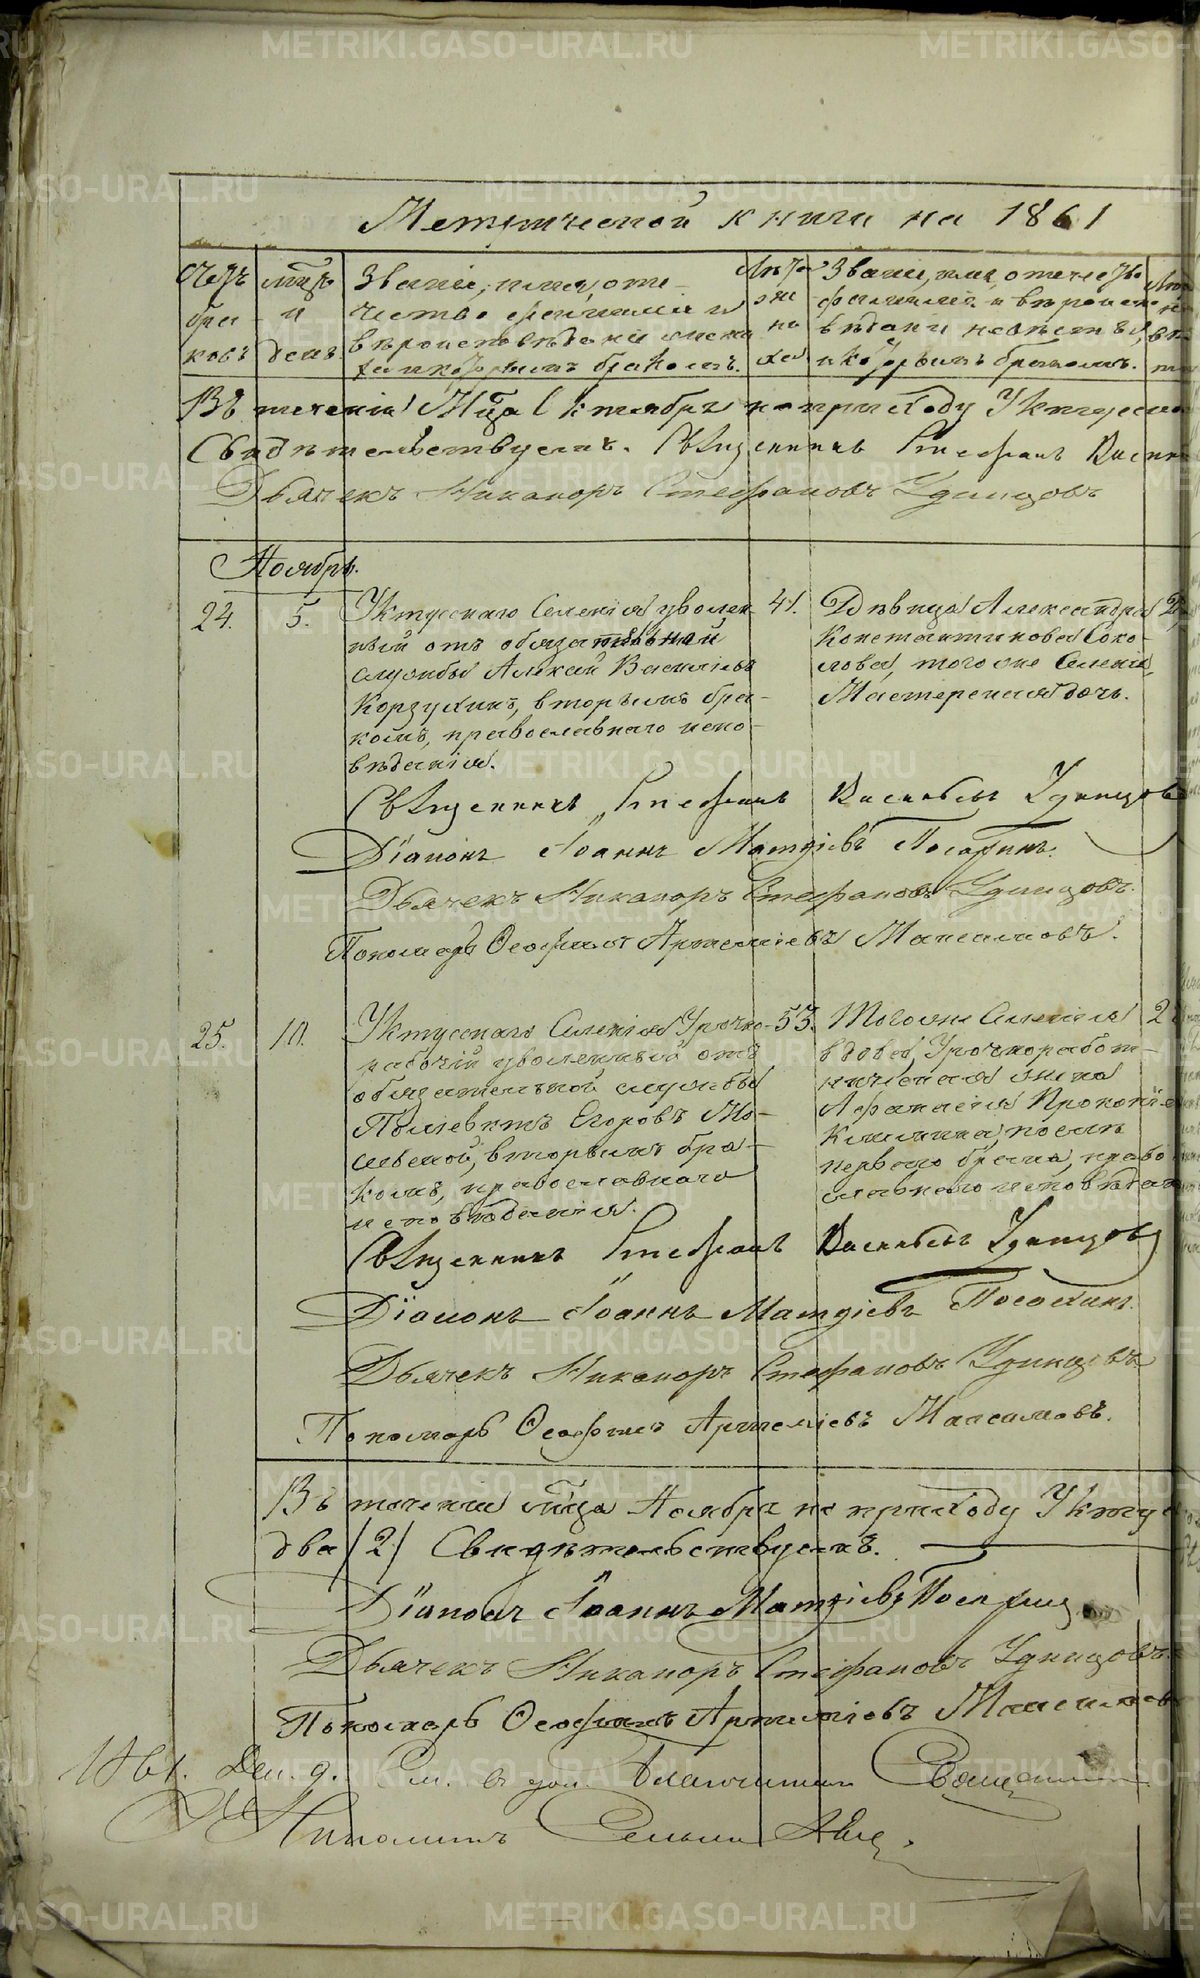 Метрической книги на 1861
Счетъ
бра
ковъ
мѣць
и
день
Званіе, имя, оте-
чество фамилія и
вѣроисповѣданіе жениха
и которымъ бракомъ.
Лѣта
же
ни
ха
Званіе, имя, отечество
фамилія и вѣроиспо
вѣданіе невѣсты,
и которымъ бракомъ.
Въ теченіи Мѣца Октября по приходу Уктусско
Свидѣтельствуемъ. Священникъ Стефанъ Васил
Дьячекъ Никаноръ Стефановъ Удинцовъ
Ноябрь.
24. 5.
Уктусскаго Селенія уволен
ный отъ обязательной
службы Алексѣй Васильевъ
Корзухинъ, вторымъ бра-
комъ, православнаго испо-
вѣданія.
41.
Дѣвица Александра
Константинова Соко-
лова, того же Селенія,
Мастерская дочь.
Священникъ Стефанъ Васильевъ Удинцовъ
Діаконъ Іоаннъ Матѳіевъ Посохинъ.
Дьячекъ Никаноръ Стефановъ Удинцовъ.
Пономарь Ѳеофилъ Артеміевъ Максимовъ.
25. 10.
Уктусскаго Селенія Урочно-
рабочій уволенный отъ
обязательной службы
Полієвктъ Егоровъ Мо-
сквской, вторымъ бра-
комъ, православнаго
исповѣданія.
53.
Того же Селенія
вдова, Урочноработ-
ническая жена
Афанасія Прокопі
по
перваго брака, право
славнаго исповѣдан
Священникъ Стефанъ Васильевъ Удинцовъ
Діаконъ Іоаннъ Матѳіевъ Посохинъ.
Дьячекъ Никаноръ Стефановъ Удинцовъ
Пономарь Ѳеофилъ Артеміевъ Максимовъ.
Въ теченіи мѣца Ноября по приходу Укту
два /2/ Свидѣтельствуемъ.
Діаконъ Іоаннъ Матѳіевъ Посохинъ
Дьячекъ Никаноръ Стефановъ Удинцовъ.
Пономарь Ѳеофилъ Артеміевъ Максимовъ
1861. Дек. 9. Благочинный Священникъ